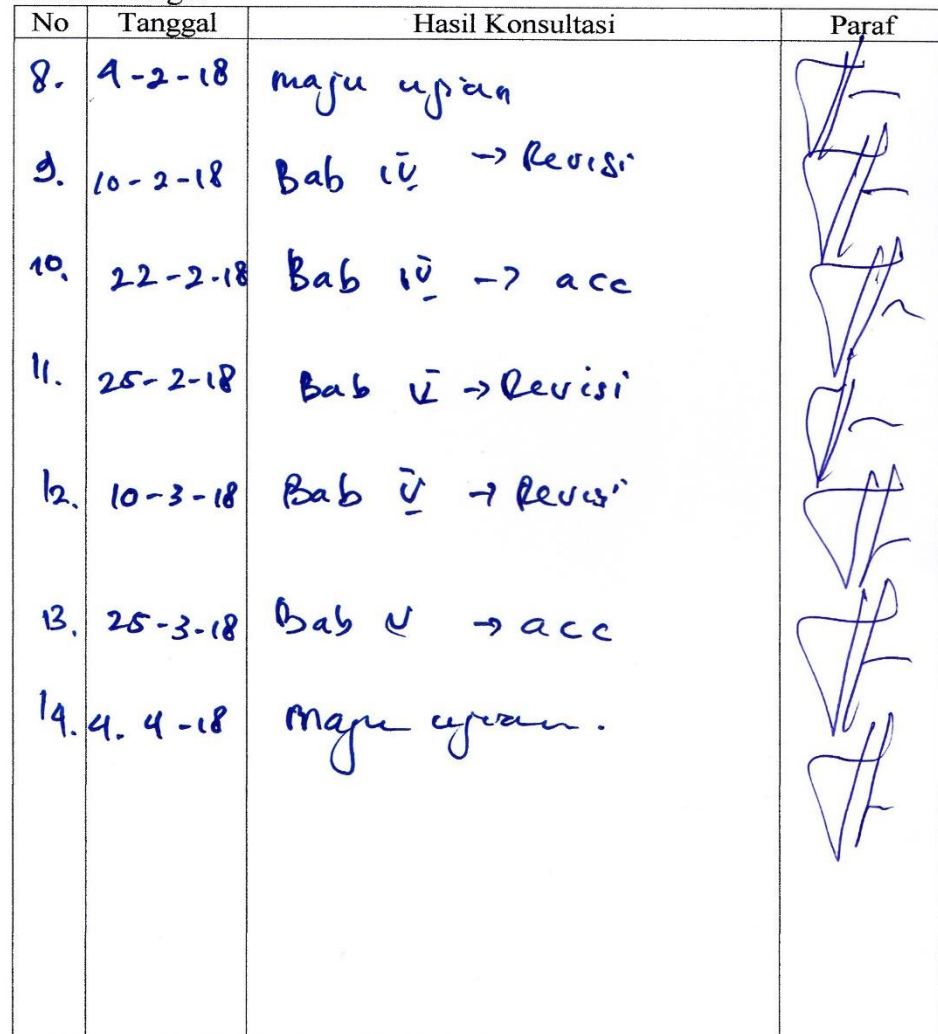 No Tanggal Hasil Konsultasi Paraf
8. 4-2-18 maju ujian
9. 10-2-18 Bab IV → Revisi
10. 22-2-18 Bab IV → acc
11. 25-2-18 Bab V → Revisi
12. 10-3-18 Bab V → Revisi
13. 25-3-18 Bab V → acc
14. 4.4-18 Maju ujian.